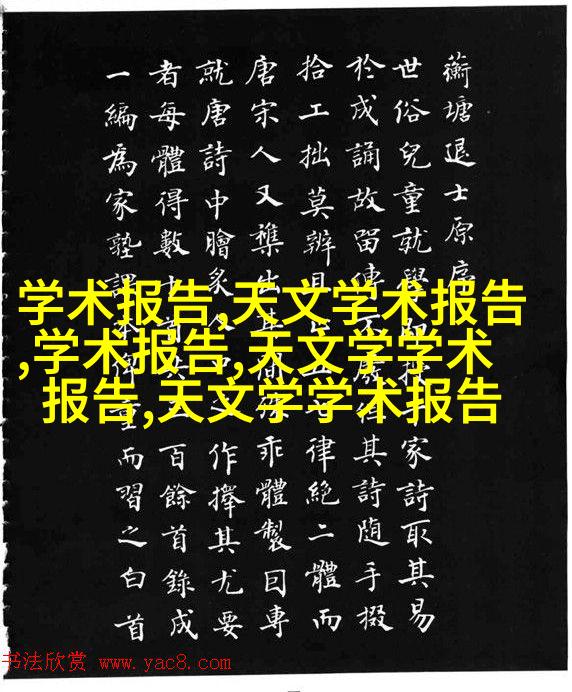 蘅塘退士原序
世俗兒童就學授家詩取其易
於成誦故留傳不廢其詩隨手掇
拾工拙莫辨且律絕二體而
唐宋人又雜出其間乖體製因專
就唐詩中膾炙之作擇其尤要
者每體得數十首百餘首錄成
一編為家塾課本俾童而習之白首
学术报告,天文学术报告
,学术报告,天文学学术
报告,天文学学术报告
书法欣赏 www.yac8.com